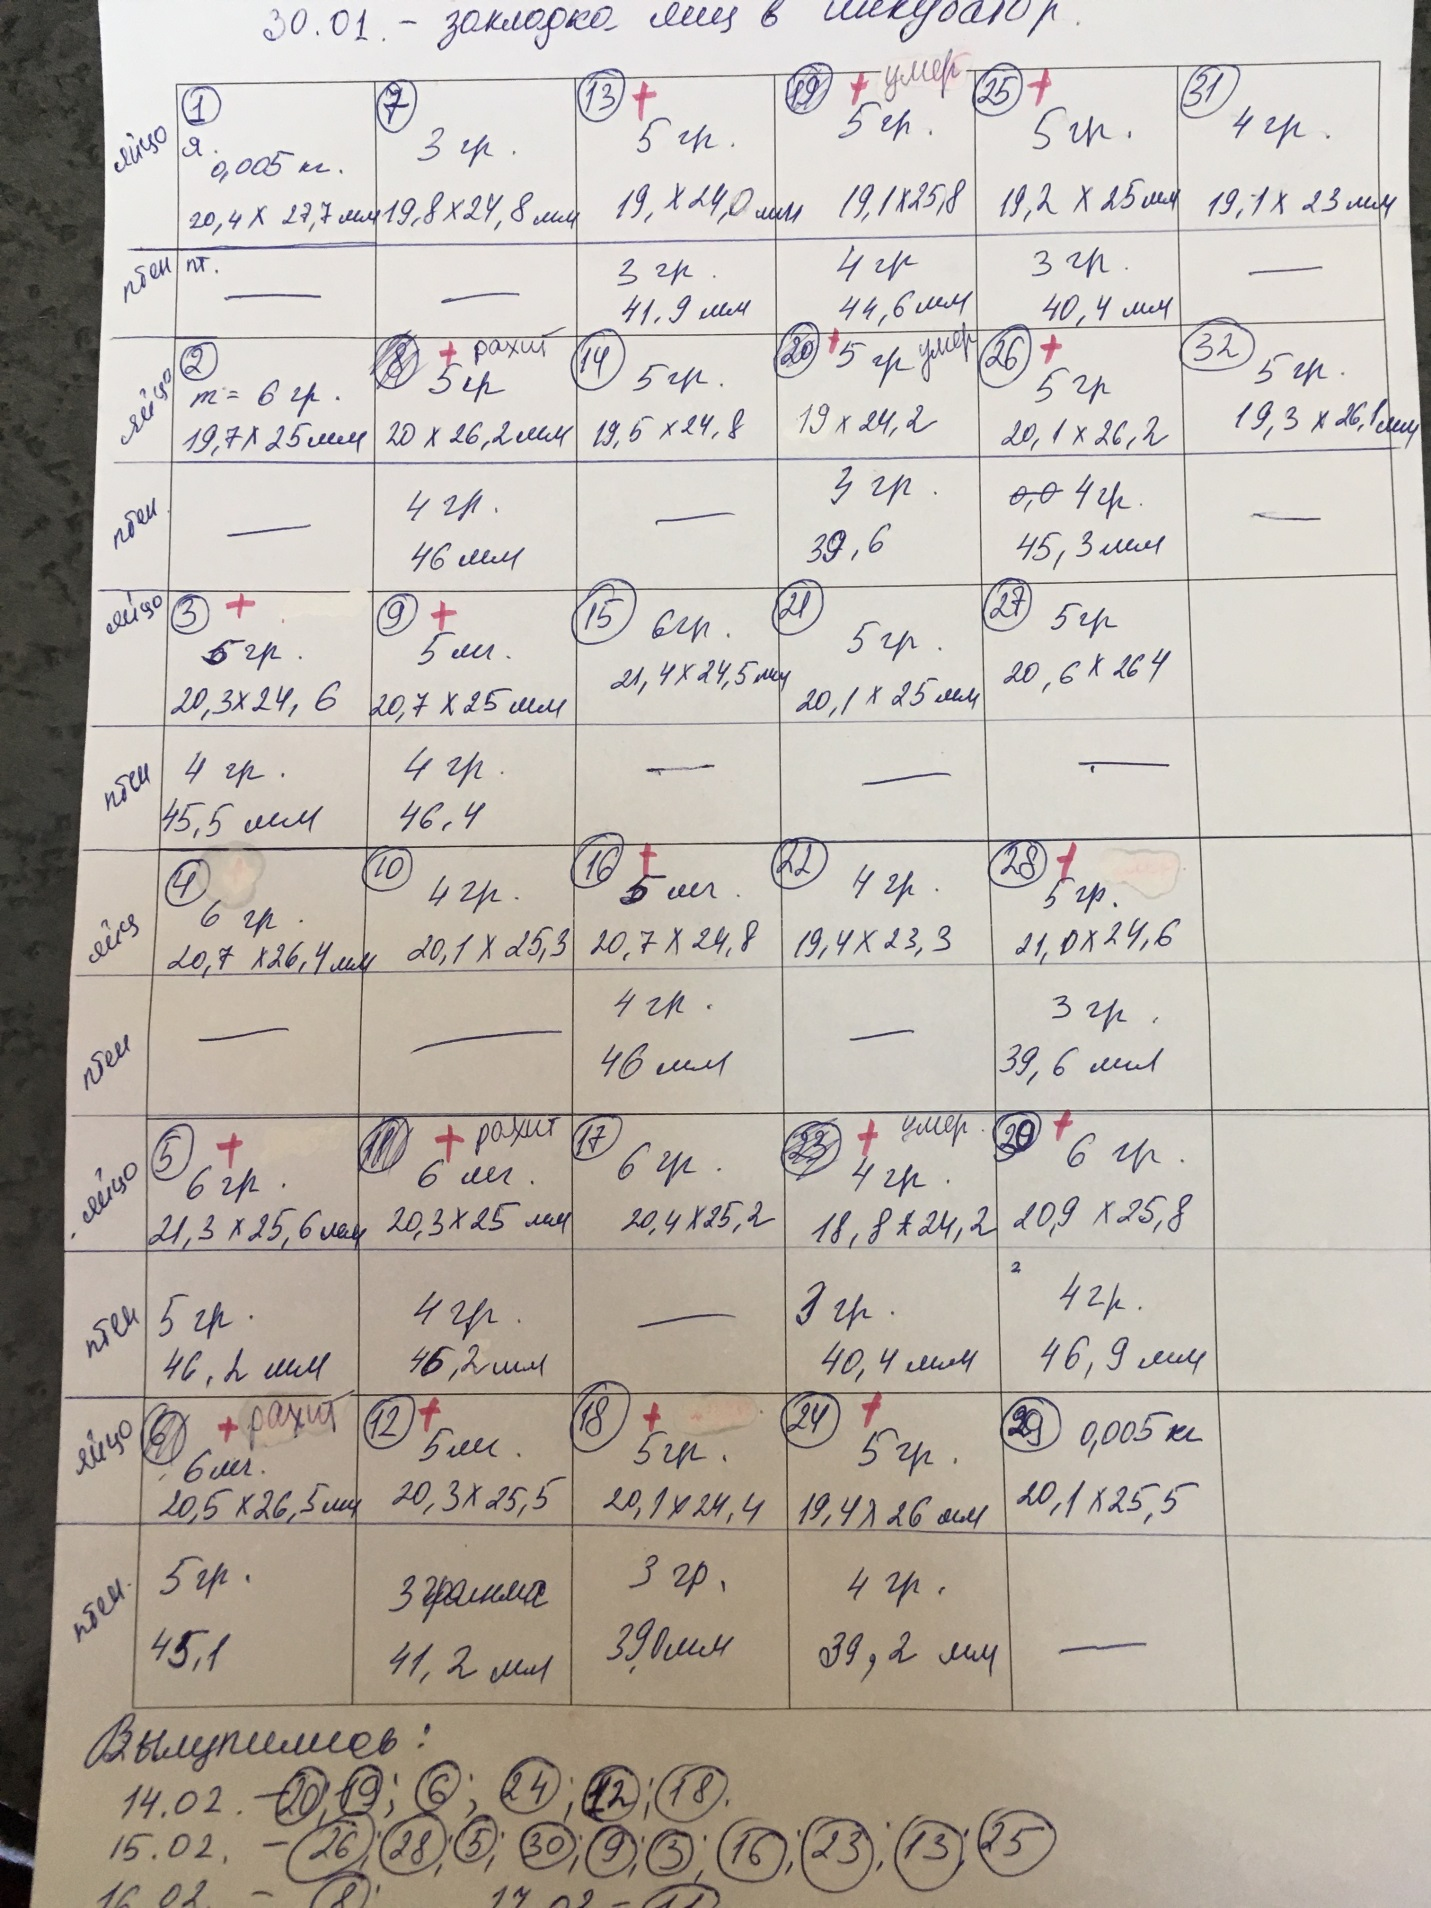 30.01. - закладка яиц в инкубатор.
яйцо
1
я.
0,005 кг.
20,4 х 27,7 мм
7
3 гр.
19,8 х 24,8 мм
13 +
5 гр.
19, х 24,0 мм
19 + умер
5 гр.
19,1 х 25,8
25 +
5 гр.
19,2 х 25 мм
31
4 гр.
19,1 х 23 мм
птен
пт. —
—
3 гр.
41,9 мм
4 гр
44,6 мм
3 гр.
40,4 мм
—
яйцо
2
m = 6 гр.
19,7 х 25 мм
8 + рахит
5 гр
20 х 26,2 мм
14
5 гр.
19,5 х 24,8
20 + 5 гр умер
19 х 24,2
26 +
5 гр
20,1 х 26,2
32
5 гр.
19,3 х 26,1 мм
птен.
—
4 гр.
46 мм
—
3 гр.
39,6
0,0 4 гр.
45,3 мм
—
яйцо
3 +
5 гр.
20,3 х 24,6
9 +
5 мг.
20,7 х 25 мм
15
6 гр.
21,4 х 24,5 мм
21
5 гр.
20,1 х 25 мм
27
5 гр
20,6 х 26 4
птен
4 гр.
45,5 мм
4 гр.
46,4
—
—
—
яйц
4
6 гр.
20,7 х 26,4 мм
10
4 гр.
20,1 х 25,3
16 +
5 мг.
20,7 х 24,8
22
4 гр.
19,4 х 23,3
28 +
5 гр.
21,0 х 24,6
птен
—
—
4 гр.
46 мм
—
3 гр.
39,6 мм
яйцо
5 +
6 гр.
21,3 х 25,6 мм
11 + рахит
6 мг.
20,3 х 25 мм
17
6 гр.
20,4 х 25,2
23 + умер.
4 гр.
18,8 х 24,2
+
6 гр.
20,9 х 25,8
птен
5 гр.
46,2 мм
4 гр.
46,2 мм
—
3 гр.
40,4 мм
2
4 гр.
46,9 мм
яйцо
6 + рахит
6 мг.
20,5 х 26,5 мм
12 +
5 мг.
20,3 х 25,5
18 +
5 гр.
20,1 х 24,4
24 +
5 гр.
19,4 х 26 мм
29 0,005 кг
20,1 х 25,5
птен.
5 гр.
45,1
3 грамма
41,2 мм
3 гр.
39,0 мм
4 гр.
39,2 мм
—
Вылупились:
14.02. - 20; 19; 6; 24; 12; 18.
15.02. - 26; 28; 5; 30; 9; 3; 16; 23; 13; 25
16.02. - 8; 17.02 - 11